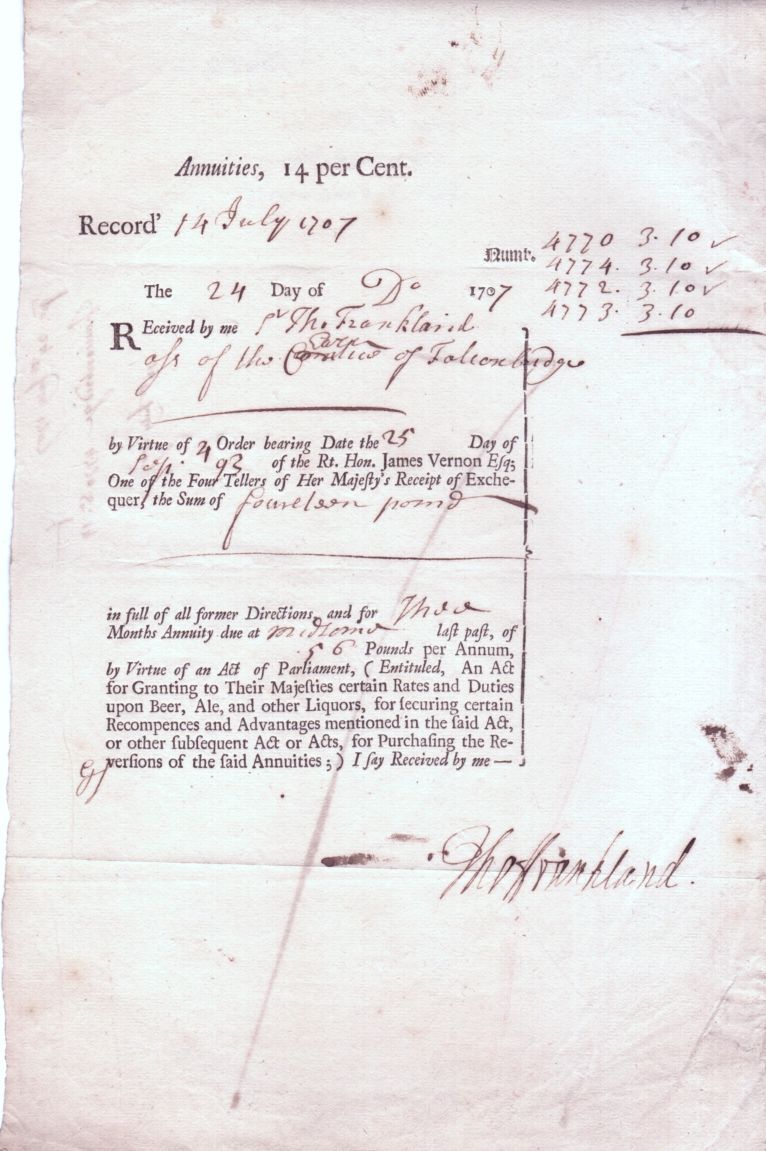 Annuities, 14 per Cent.
Record' 14 July 1707
Numb. 4770 3.10
4774. 3.10
4772. 3.10
4773. 3.10
The 24 Day of Do 1707
REceived by me Sr Tho Frankland
ass of the Earl of Falconbridge
by Virtue of 4 Order bearing Date the 25 Day of
Sep. 93 of the Rt. Hon. James Vernon Esq;
One of the Four Tellers of Her Majeſty's Receipt of Exche-
quer, the Sum of fourteen pound
in full of all former Directions, and for Three
Months Annuity due at midsomer laſt paſt, of
56 Pounds per Annum,
by Virtue of an Act of Parliament, (Entituled, An Act
for Granting to Their Majeſties certain Rates and Duties
upon Beer, Ale, and other Liquors, for ſecuring certain
Recompences and Advantages mentioned in the ſaid Act,
or other ſubſequent Act or Acts, for Purchaſing the Re-
verſions of the ſaid Annuities;) I ſay Received by me —
Tho Frankland.